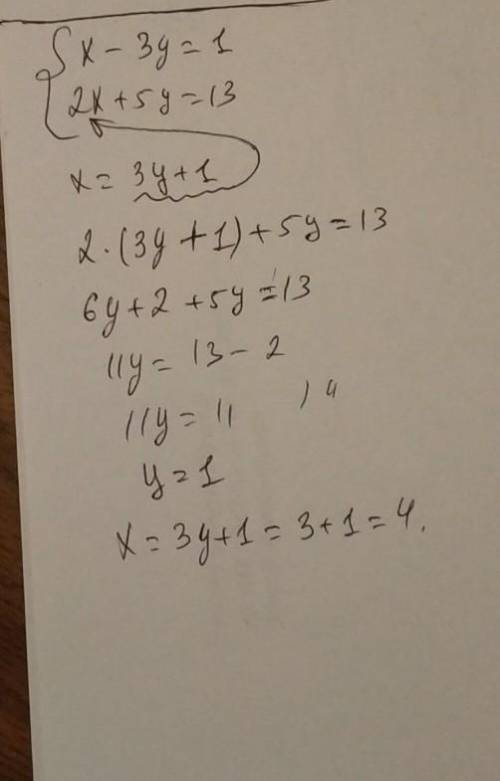 x - 3y = 1
2x + 5y = 13
x = 3y + 1
2·(3y + 1) + 5y = 13
6y + 2 + 5y = 13
11y = 13 - 2
11y = 11
y = 1
x = 3y + 1 = 3 + 1 = 4.